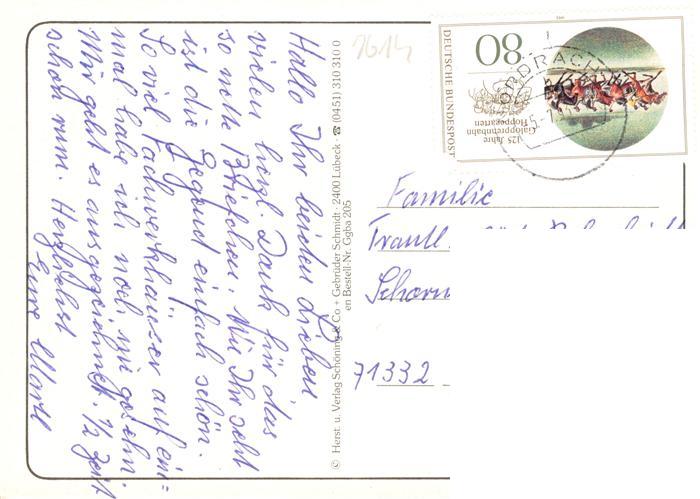 Hallo Ihr beiden Lieben
vielen herzl. Dank für das
so nette Briefchen. Wie Ihr seht
ist die Gegend einfach schön.
So viel Fachwerkhäuser auf ein=
mal habe ich noch nie gesehn.
Mir geht es ausgezeichnet. 1/2 Zeit
schon rum. Herzlichst
Eure
© Herst. u. Verlag Schöning & Co + Gebrüder Schmidt · 2400 Lübeck · ☎ (0451) 310 310 0
en Bestell-Nr. Ggba 205
2614
DEUTSCHE BUNDESPOST
80
125 Jahre
Galopprennbahn
Hoppegarten
NORDRACH
Familie
Trautl.
Schorn
71332